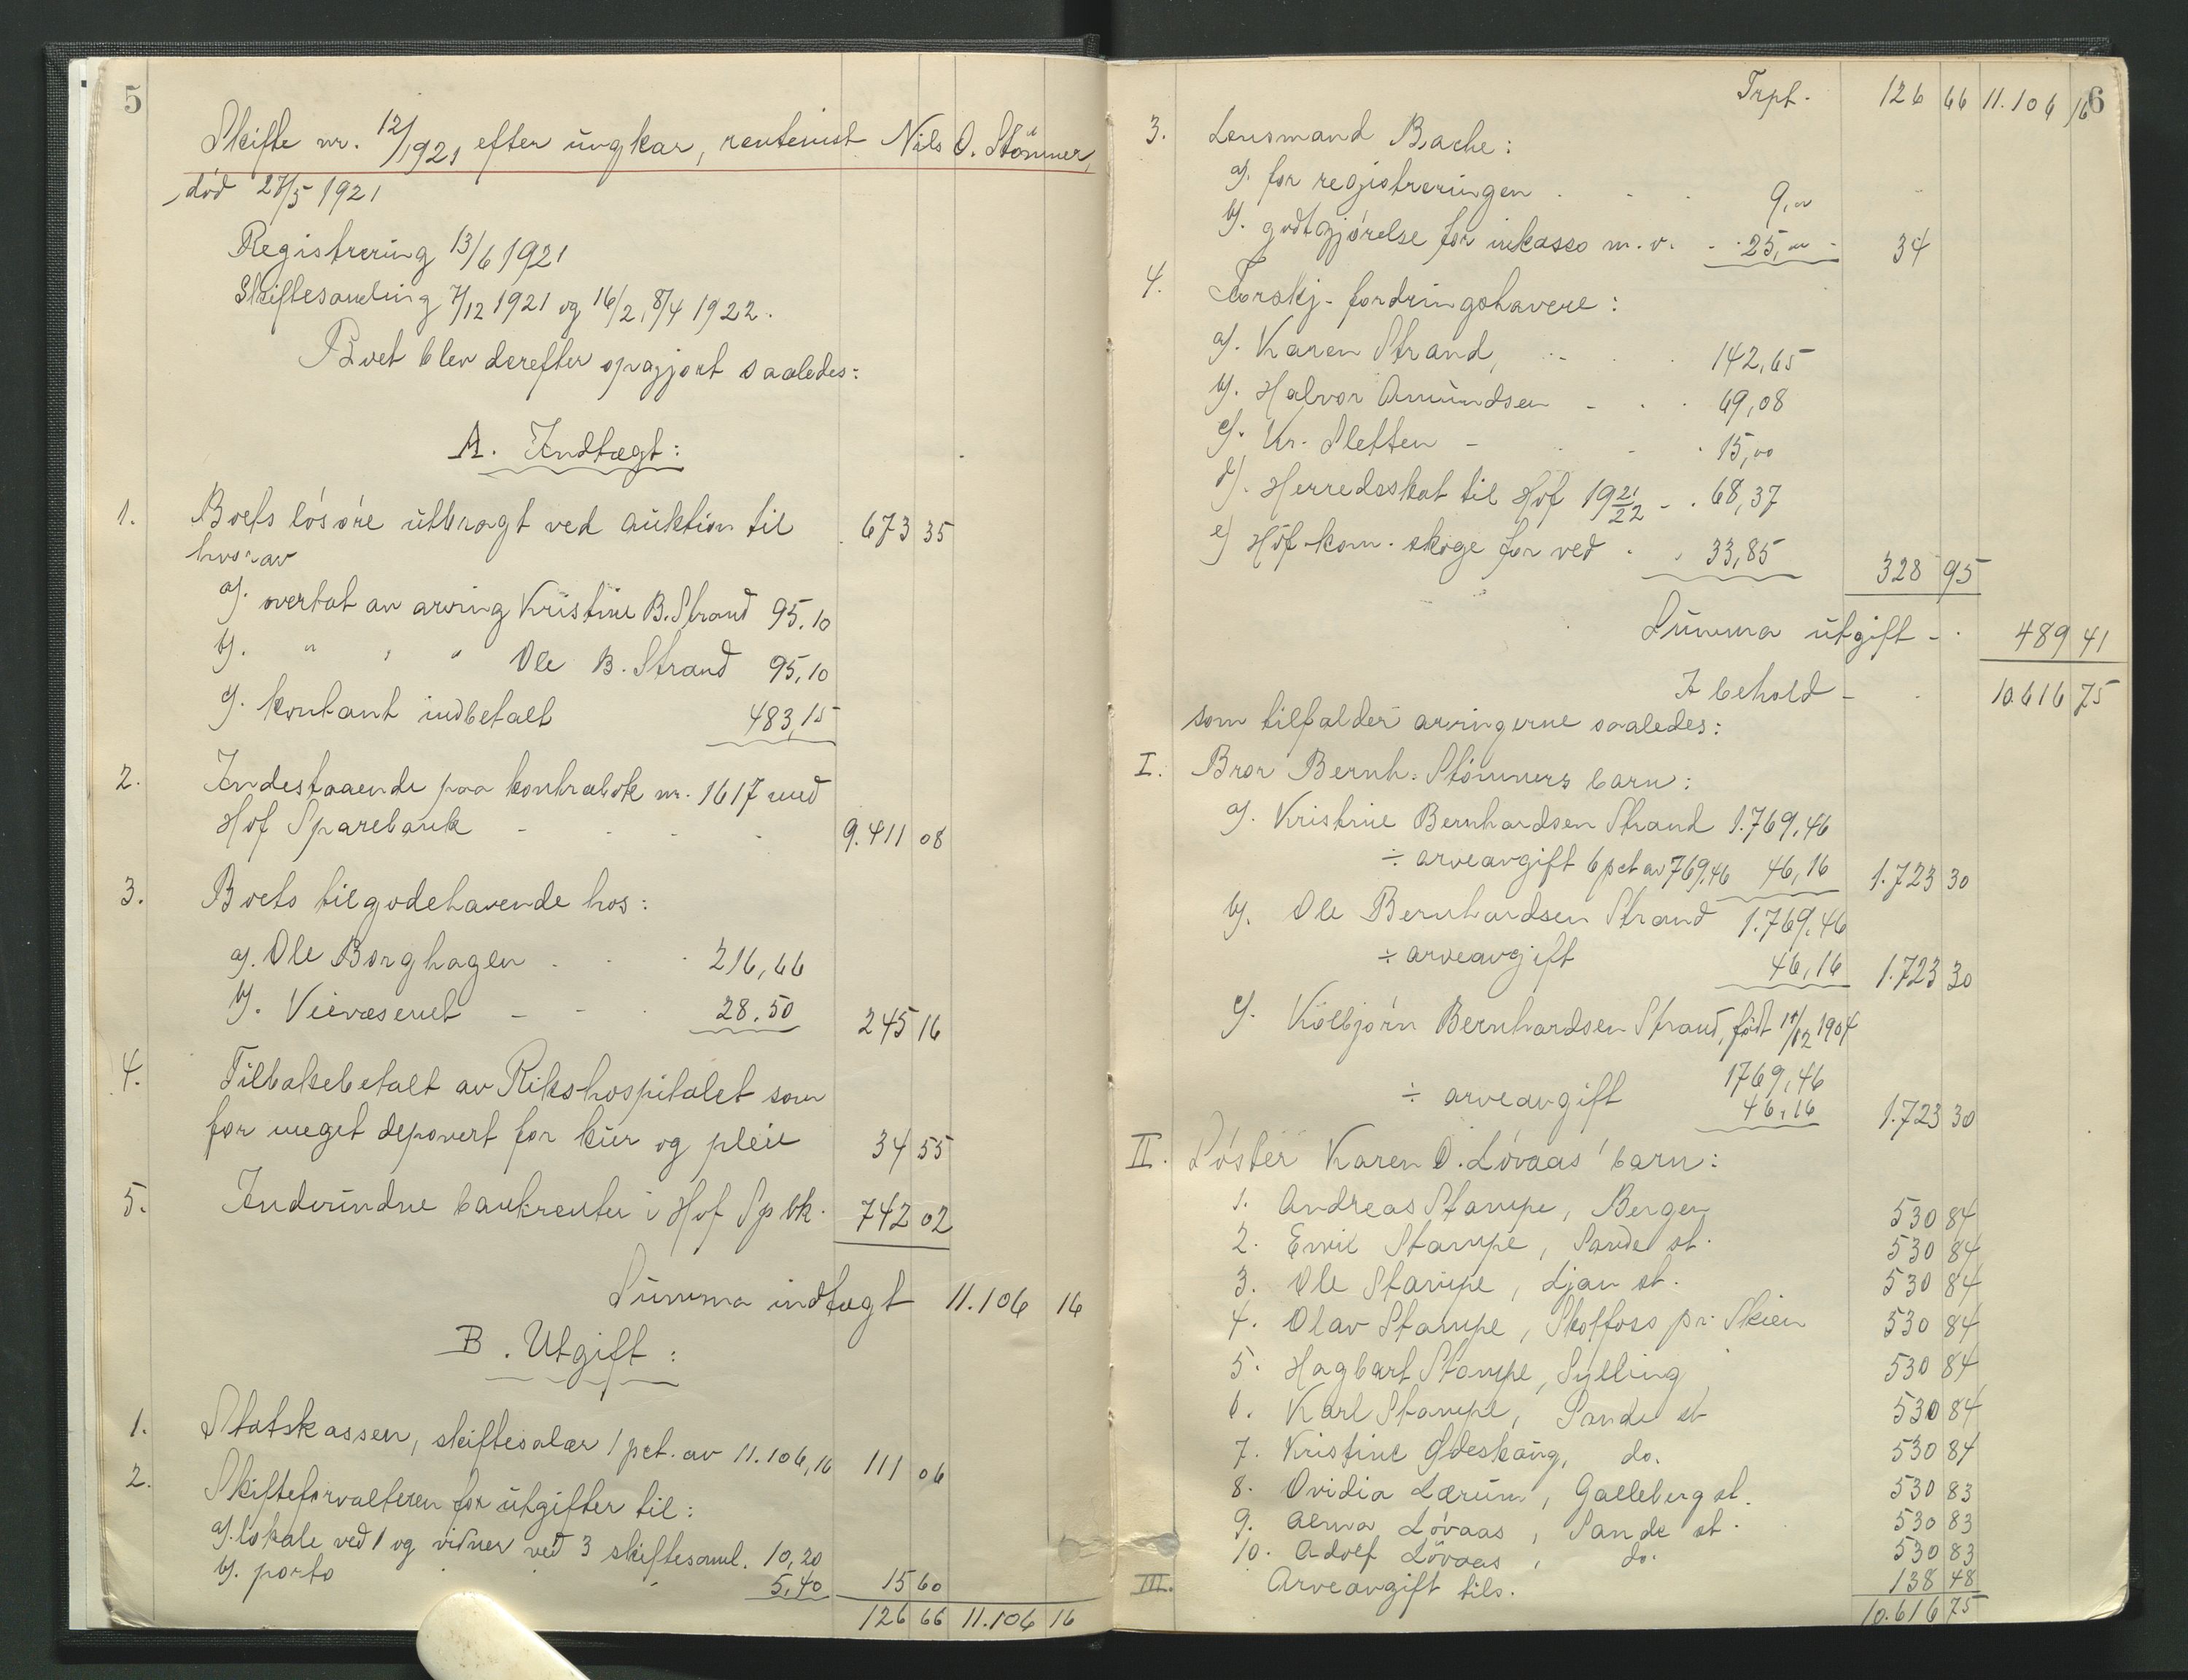 5
Skifte nr. 12/1921 efter ungkar, rentenist Nils O. Stømner,
død 27/5 1921
Registrering 13/6 1921
Skiftesamling 7/12 1921 og 16/2, 8/4 1922.
Boet blev derefter opgjort saaledes:
A. Indtægt:
1. Boets løsøre utbragt ved auktion til 673 35
hvorav
a). overtat av arving Kristine B. Strand 95.10
b). " " " Ole B. Strand 95,10
c). kontant indbetalt 483,15
2. Indestaaende paa kontrabok nr. 1617 med
Hof Sparebank - - - - 9.411 08
3. Boets tilgodehavende hos:
a). Ole Borghagen . . . 216,66
b). Veivæsenet - - . 28.50 245 16
4. Tilbakebetalt av Rikshospitalet som
for meget deponert for kur og pleie 34 55
5. Indvundne bankrenter i Hof Spbk. 742 02
Summa indtægt 11.106 16
B. Utgift:
1. Statskassen, skiftesalær 1 pct. av 11.106,16 111 06
2. Skifteforvalteren for utgifter til:
a). lokale ved 1 og vidner ved 3 skiftesaml. 10,20
b). porto 5,40 15 60
126 66 11.106 16
6
Trpt. 126 66 11.106 16
3. Lensmand Bache:
a). for registreringen . - . 9,00
b). godtgjørelse for inkasso m.v. - . 25,00 - 34
4. Forskj. fordringshavere:
a). Karen Strand, - . . 142,65
b). Halvor Amundsen - . . 69,08
c). Kr. Sletten - . - . 15,00
d). Herredsskat til Hof 1921/22 - . 68,37
e) Hof kom. skoge for ved . . 33,85 328 95
Summa utgift - . 489 41
I behold - . 10.616 75
som tilfalder arvingerne saaledes:
I. Bror Bernh. Stømners barn:
a). Kristine Bernhardsen Strand 1.769,46
÷ arveavgift 6 pct av 769,46 46,16 1.723 30
b). Ole Bernhardsen Strand 1.769,46
÷ arveavgift 46,16 1.723 30
c). Kolbjørn Bernhardsen Strand, født /12 1904
1769,46
÷ arveavgift 46,16 1.723 30
II. Søster Karen O. Løvaas' barn:
1. Andreas Stampe, Bergen 530 84
2. Emil Stampe, Sande st. 530 84
3. Ole Stampe, Ljan st. 530 84
4. Olav Stampe, Skotfoss pr. Skien 530 84
5. Hagbart Stampe, Sylling 530 84
6. Karl Stampe, Sande st 530 84
7. Kristine do. 530 84
8. Ovidia Lærum, Galleberg st. 530 83
9. Alma Løvaas, Sande st. 530 83
10. Adolf Løvaas, do. 530 83
III. Arveavgift tils. 138 48
10.616 75